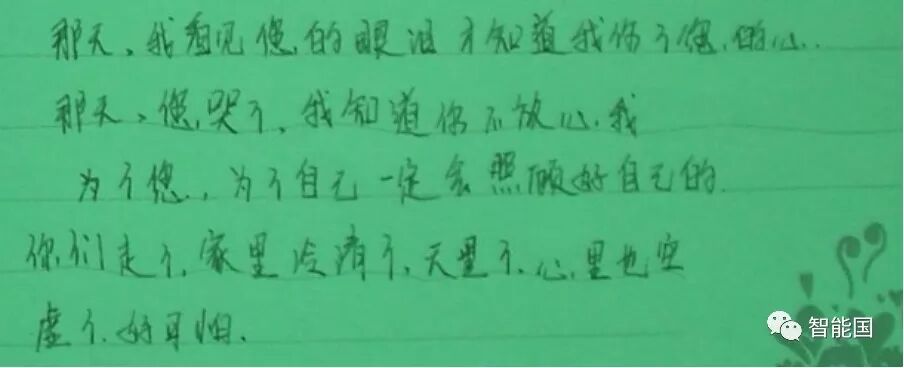 那天、我看见您的眼泪才知道我伤了您的心..
那天、您哭了、我知道你不放心我
为了您.,为了自己一定会照顾好自己的
你们走了,家里冷清了,天黑了、心里也空
虚了.好可怕.
智能国